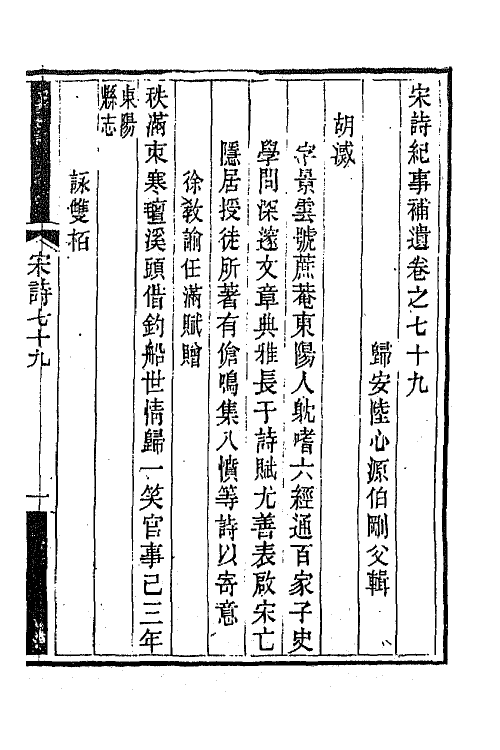 宋詩紀事補遺卷之七十九
歸安陸心源伯剛父輯
胡減
字景雲號蔗菴東陽人躭嗜六經通百家子史
學問深邃文章典雅長于詩賦尤善表啟宋亡
隱居授徒所著有傖鳴集八憤等詩以寄意
徐教諭任滿賦贈
秩滿束寒氊溪頭借釣船世情歸一笑官事已三年
東陽
縣志
詠雙栢
宋詩七十九
一